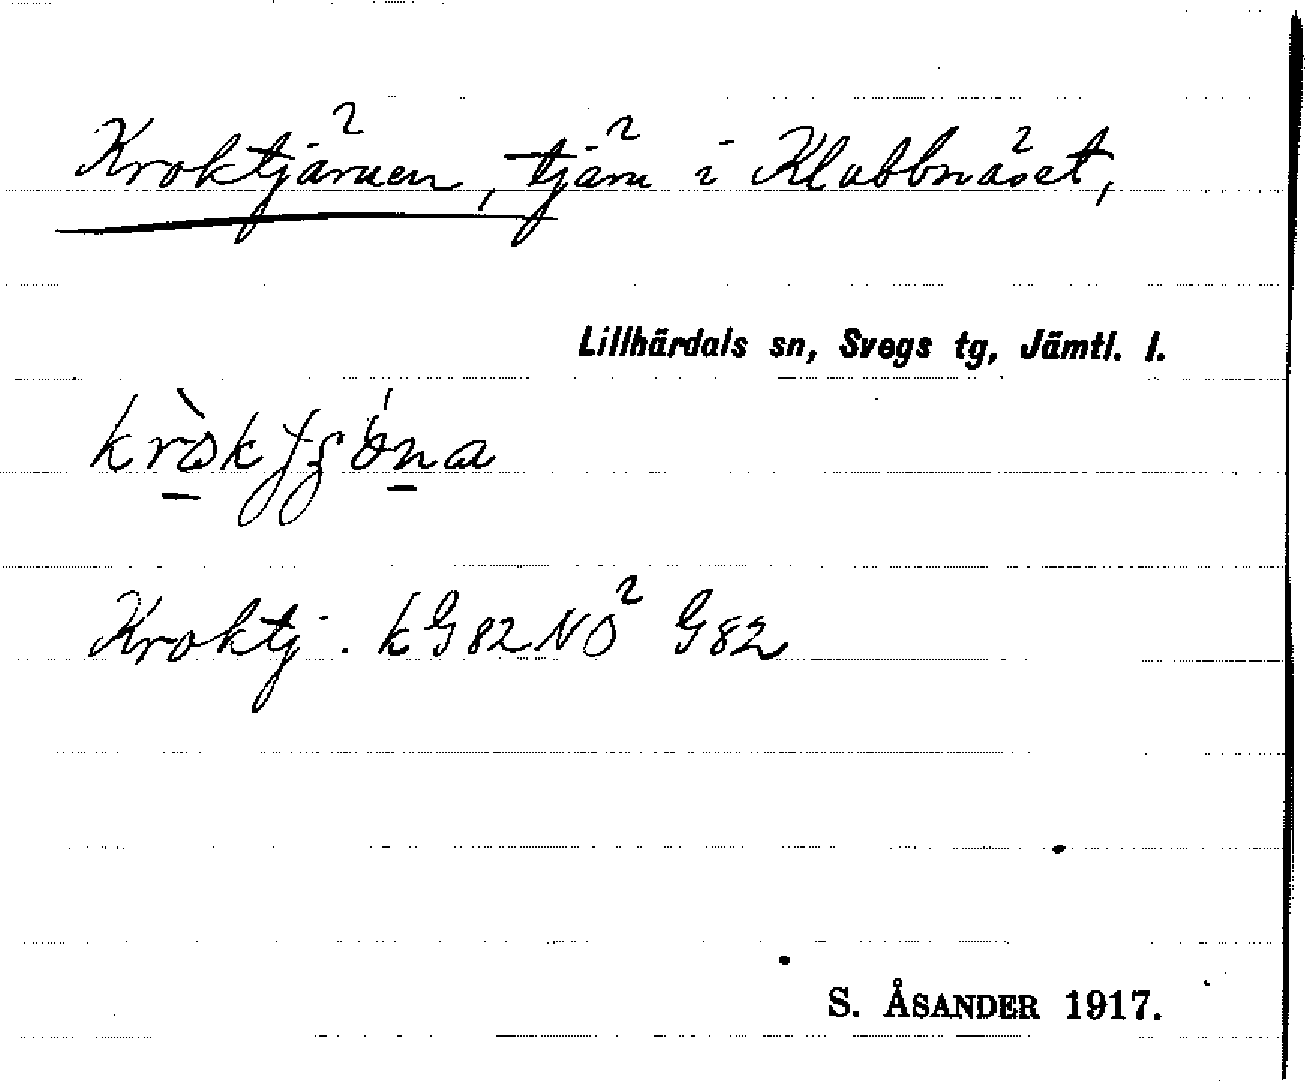 Kroktjärnen, tjärn i Klubbnäset,
Lillhärdals sn, Svegs tg, Jämtl. l.
Kroktj. kG82NO² G82
S. ÅSANDER 1917.